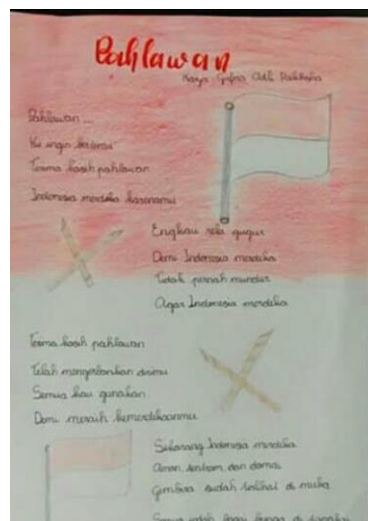 Pahlawan
Karya Adli
Pahlawan...
Ku ingin
Terima kasih pahlawan
Indonesia merdeka karenamu
Engkau rela gugur
Demi Indonesia merdeka
Tidak pernah mundur
Agar Indonesia merdeka
Terima kasih pahlawan
Telah mengorbankan dirimu
Semua kau gunakan
Demi meraih kemerdekaanmu
Sekarang Indonesia merdeka
Aman, tentram, dan damai
Gembira sudah terlihat di muka
Semua indah bagai bunga di